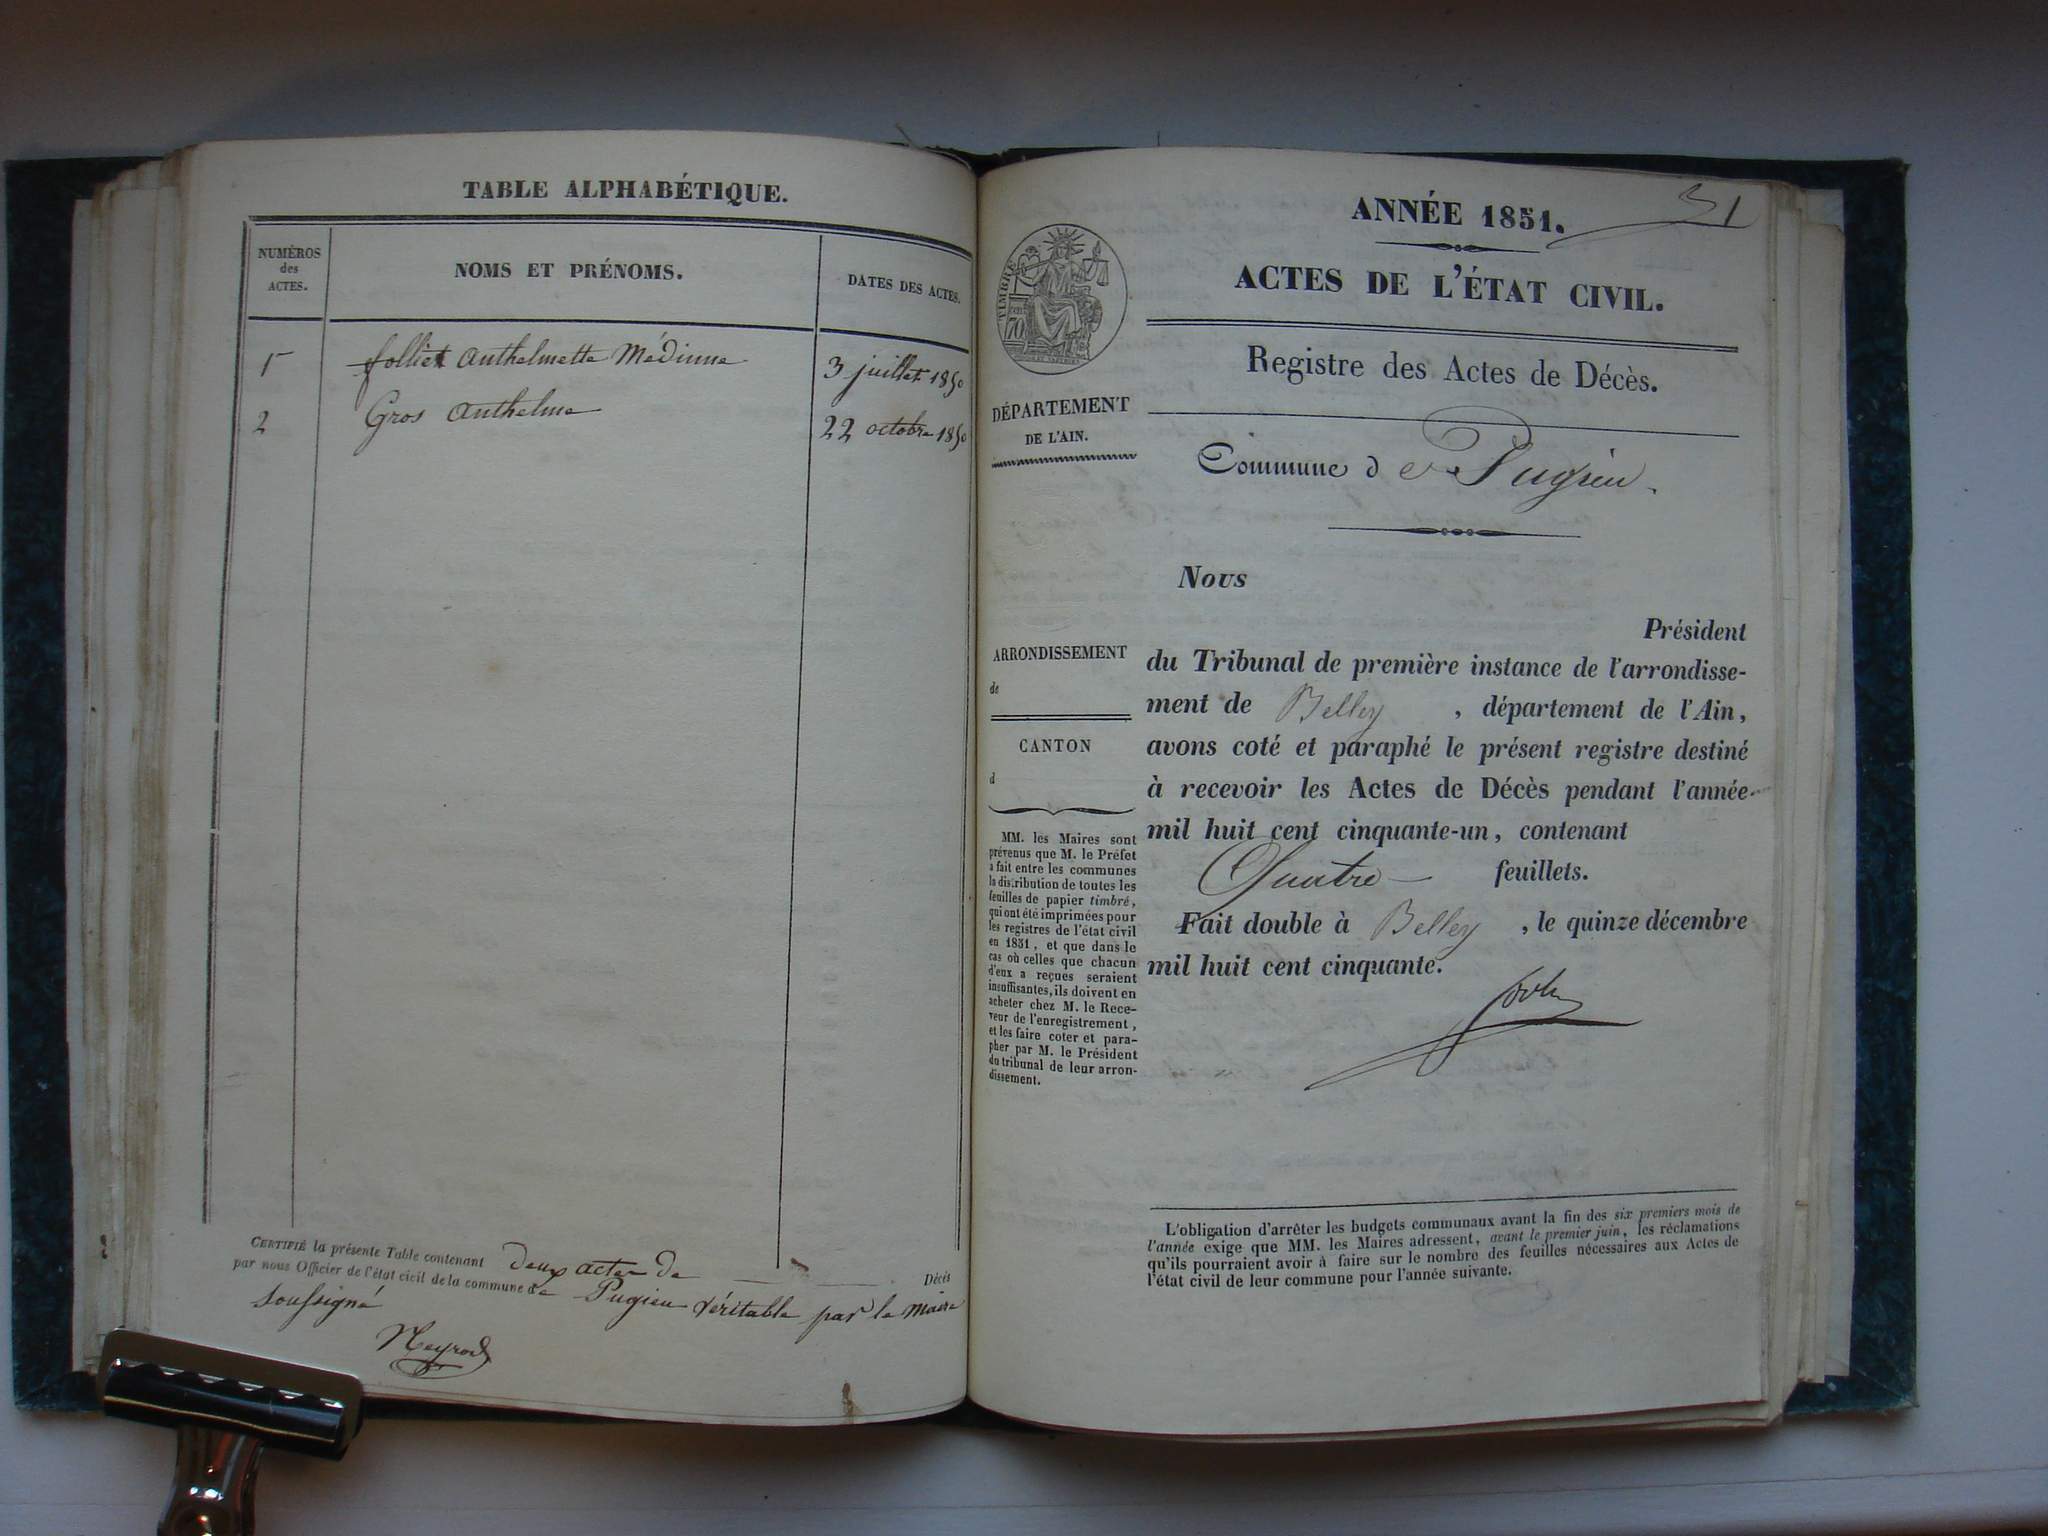 TABLE ALPHABÉTIQUE.
NUMÉROS
des
ACTES.
NOMS ET PRÉNOMS.
DATES DES ACTES.
1 folliet anthelmette Médinne 3 juillet 1850
2 Gros anthelme 22 octobre 1850
CERTIFIÉ la présente Table contenant deux actes de Décès
par nous Officier de l'état civil de la commune de Pugieu véritable par le maire
soussigné
ANNÉE 1851.
31
ACTES DE L'ÉTAT CIVIL.
TIMBRE
70
Registre des Actes de Décès.
DÉPARTEMENT
DE L'AIN.
Commune de Pugieu.
Nous
Président
ARRONDISSEMENT
de
CANTON
d
du Tribunal de première instance de l'arrondisse-
ment de Belley , département de l'Ain,
avons coté et paraphé le présent registre destiné
à recevoir les Actes de Décès pendant l'année
mil huit cent cinquante-un, contenant
Quatre feuillets.
Fait double à Belley , le quinze décembre
mil huit cent cinquante.
MM. les Maires sont
prévenus que M. le Préfet
a fait entre les communes
la distribution de toutes les
feuilles de papier timbré,
qui ont été imprimées pour
les registres de l'état civil
en 1851, et que dans le
cas où celles que chacun
d'eux a reçues seraient
insuffisantes, ils doivent en
acheter chez M. le Rece-
veur de l'enregistrement,
et les faire coter et para-
pher par M. le Président
du tribunal de leur arron-
dissement.
L'obligation d'arrêter les budgets communaux avant la fin des six premiers mois de
l'année exige que MM. les Maires adressent, avant le premier juin, les réclamations
qu'ils pourraient avoir à faire sur le nombre des feuilles nécessaires aux Actes de
l'état civil de leur commune pour l'année suivante.